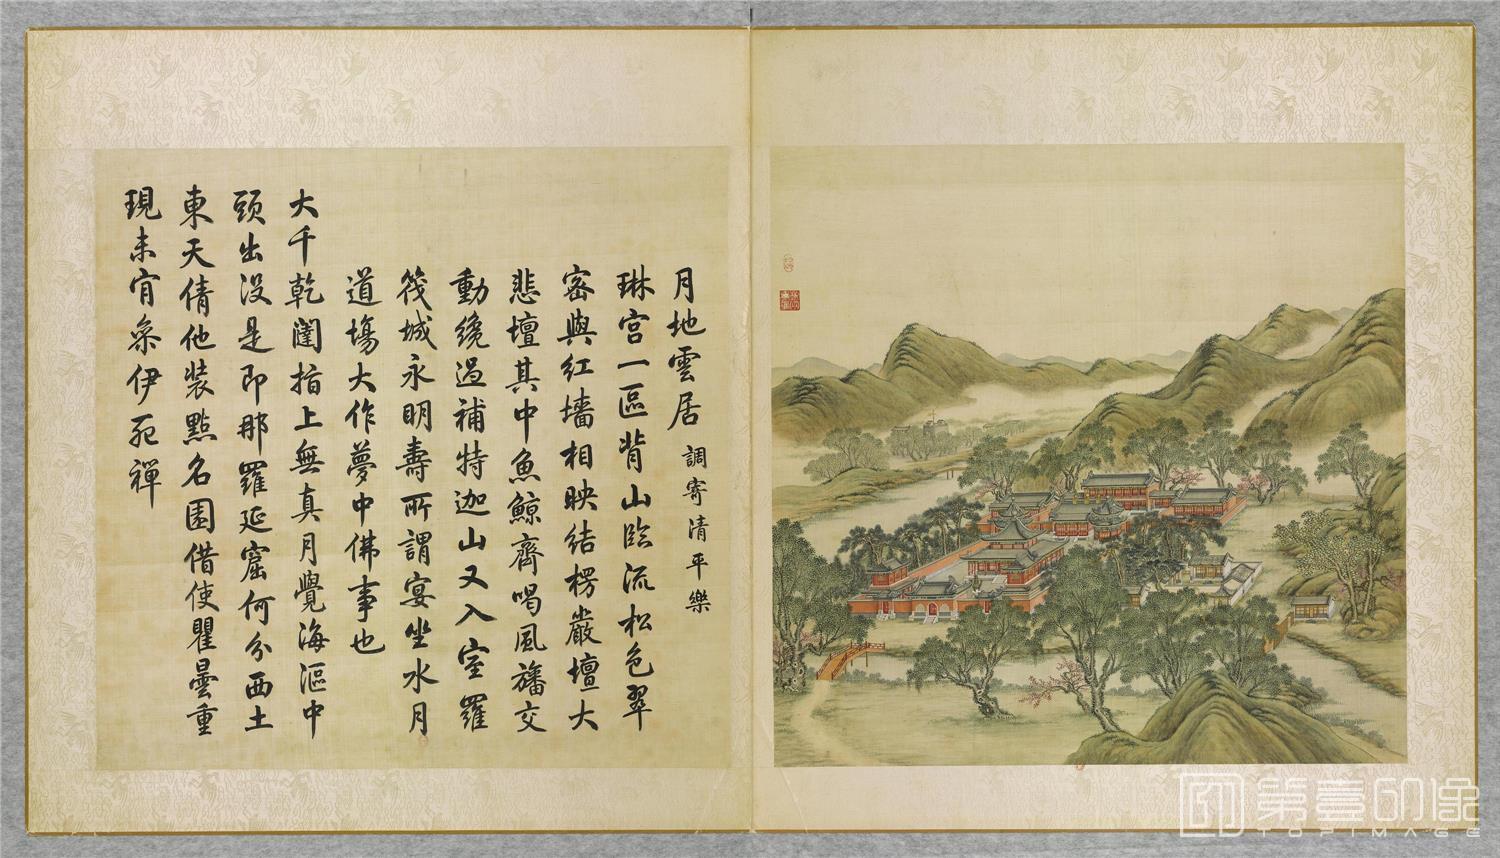 月地雲居 調寄清平樂
琳宫一區背山臨流松色翠
密與紅墻相映結楞嚴壇大
悲壇其中魚鯨齊喝風旛交
動纔過補特迦山又入室羅
筏城永明壽所謂宴坐水月
道場大作夢中佛事也
大千乾闥指上無真月覺海漚中
頭出没是即那羅延窟何分西土
東天倩他装點名園借使瞿曇重
現未肎叅伊死禪
第壹印像
TOPIMAGE